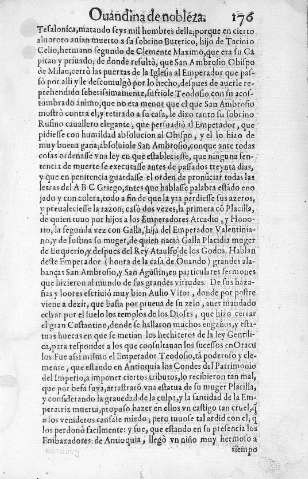 Ovandina de nobleza. 176
Tesalonica, matando seys mil hombres della, porque en cierto
alboroto avian muerto a su sobrino Buterico, hijo de
Celio, hermano segundo de Clemente Maximo, que era su Ca
pitan y privado; de donde resultò, que San Ambrosio Obispo
de Milan, cerrò las puertas de la Iglesia al Emperador que pas
sò por alli y le descomulgò por lo hecho, despues de averle re
prehendido asperissimamente, sufriole Teodosio con su acos
tumbrado animo, que no era menor que el que San Ambrosio
mostrò contra el, y retirado a su casa, le dixo tanto su sobrino
Rufino cavallero elegante, que persuadiò al Emperador, que
pidiesse con humildad absolucion al Obispo, y el lo hizo de
muy buena gana, absolviole San Ambrosio, con que ante todas
colas ordenasse una ley en que estableciesse, que ninguna sen
tencia de muerte se executasse antes de passados treynta dias,
y que en penitencia guardasse el orden de pronũciar todas las
letras del A B C Griego, antes que hablasse palabra estando eno
jado y con colera, todo a fin de que la yra perdiesse sus azeros,
y prevaleciesse la razon; casò dos vezes, la primera cõ Placilla,
de quien tuvo por hijos a los Emperadores Arcadio, y Hono-
rio, la segunda vez con Galla, hija del Emperador Valentinia-
no, y de Iustina su muger, de quien naciò Galla Placidia muger
de Eugenio, y despues del Rey Ataulfo de los Godos. Hablan
deste Emperador (honra de la casa de Ovando) grandes ala-
banças San Ambrosio, y San Agustin, en particulares sermones
que hizieron al mundo de sus grandes virtudes. De sus haza-
ñas y loores escriviò muy bien Aulio Vitor, donde por postre
viene a dezir, que basta por prueva de su zelo, aver mãdado
echar por el suelo los templos de los Dioses, que hizo cerrar
el gran Costantino, donde se hallaron muchos engaños, y esta-
tuas huecas en que se metian los hechizeros de la ley Gentile-
ca, para responder a los que consultavan los sucessos en Oracu
los. Fue assi mismo el Emperador Teodosio, tã poderoso y cle-
mente, que estando en Antioquia los Condes del Patrimonio
del Imperio a imponer ciertos tributos, lo recibieron tan mal,
que por befa suya, arrastraron una estatua de su muger Placilla,
y considerando la gravedad de la culpa, y la santidad de la Em-
peratriz muerta, propuso hazer en ellos un castigo tan cruel, q̃
a los venideros causasse miedo; pero tuvose tal ardid con el, q̃
los perdonò facilmente: y fue, que estando en su presencia los
Embaxadores de Antioquia, llegò un niño muy hermoso a
tiempo